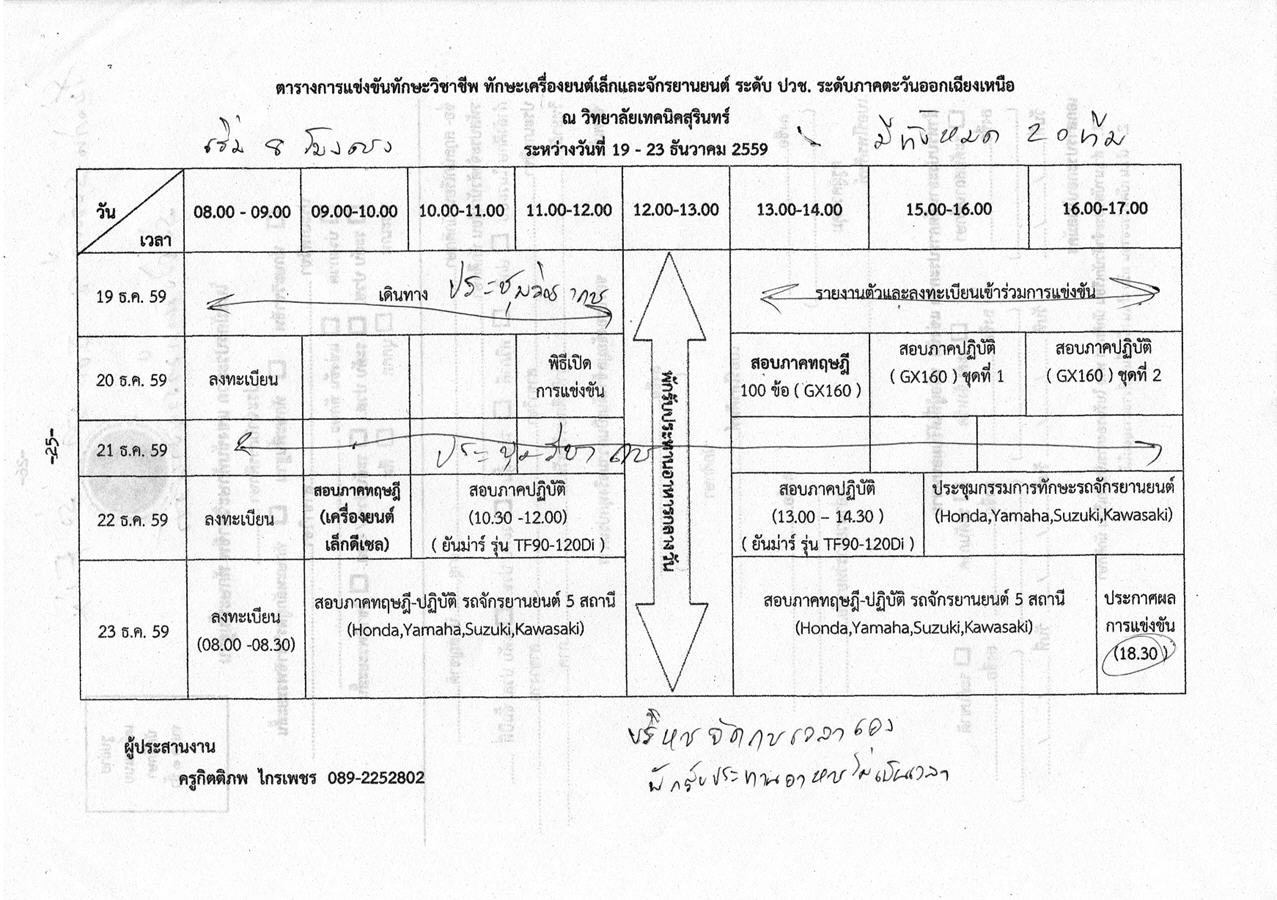 ตารางการแข่งขันทักษะวิชาชีพ ทักษะเครื่องยนต์เล็กและจักรยานยนต์ ระดับ ปวช. ระดับภาคตะวันออกเฉียงเหนือ
ณ วิทยาลัยเทคนิคสุรินทร์
เริ่ม 8 โมงตรง
ระหว่างวันที่ 19 - 23 ธันวาคม 2559
มีทั้งหมด 20 ทีม
วัน
เวลา
08.00 - 09.00 09.00-10.00 10.00-11.00 11.00-12.00 12.00-13.00 13.00-14.00 15.00-16.00 16.00-17.00
19 ธ.ค. 59 เดินทาง ประชุมวิชาการ รายงานตัวและลงทะเบียนเข้าร่วมการแข่งขัน
พักรับประทานอาหารกลางวัน
20 ธ.ค. 59 ลงทะเบียน
พิธีเปิด
การแข่งขัน
สอบภาคทฤษฎี
100 ข้อ ( GX160 )
สอบภาคปฏิบัติ
( GX160 ) ชุดที่ 1
สอบภาคปฏิบัติ
( GX160 ) ชุดที่ 2
21 ธ.ค. 59 ประชุมวิชาการ
22 ธ.ค. 59 ลงทะเบียน
สอบภาคทฤษฎี
(เครื่องยนต์
เล็กดีเซล)
สอบภาคปฏิบัติ
(10.30 -12.00)
( ยันม่าร์ รุ่น TF90-120Di )
สอบภาคปฏิบัติ
(13.00 – 14.30 )
( ยันม่าร์ รุ่น TF90-120Di )
ประชุมกรรมการทักษะรถจักรยานยนต์
(Honda,Yamaha,Suzuki,Kawasaki)
23 ธ.ค. 59
ลงทะเบียน
(08.00 -08.30)
สอบภาคทฤษฎี-ปฏิบัติ รถจักรยานยนต์ 5 สถานี
(Honda,Yamaha,Suzuki,Kawasaki)
สอบภาคทฤษฎี-ปฏิบัติ รถจักรยานยนต์ 5 สถานี
(Honda,Yamaha,Suzuki,Kawasaki)
ประกาศผล
การแข่งขัน
(18.30 )
-25-
ผู้ประสานงาน
ครูกิตติภพ ไกรเพชร 089-2252802
บริหารจัดการเวลาเอง
พักรับประทานอาหารไม่เป็นเวลา